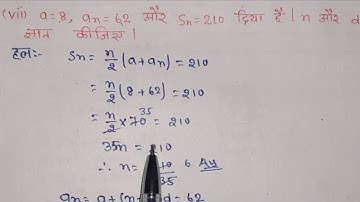 (vii) a=8, an=62 और Sn=210 दिया है। n और d
ज्ञात कीजिए।
हल:- Sn = n/2 (a+an) = 210
= n/2 (8+62) = 210
= n/2 × 70 35 = 210
35n = 210
∴ n = 6 Ans
35
an = a+(n d = 62